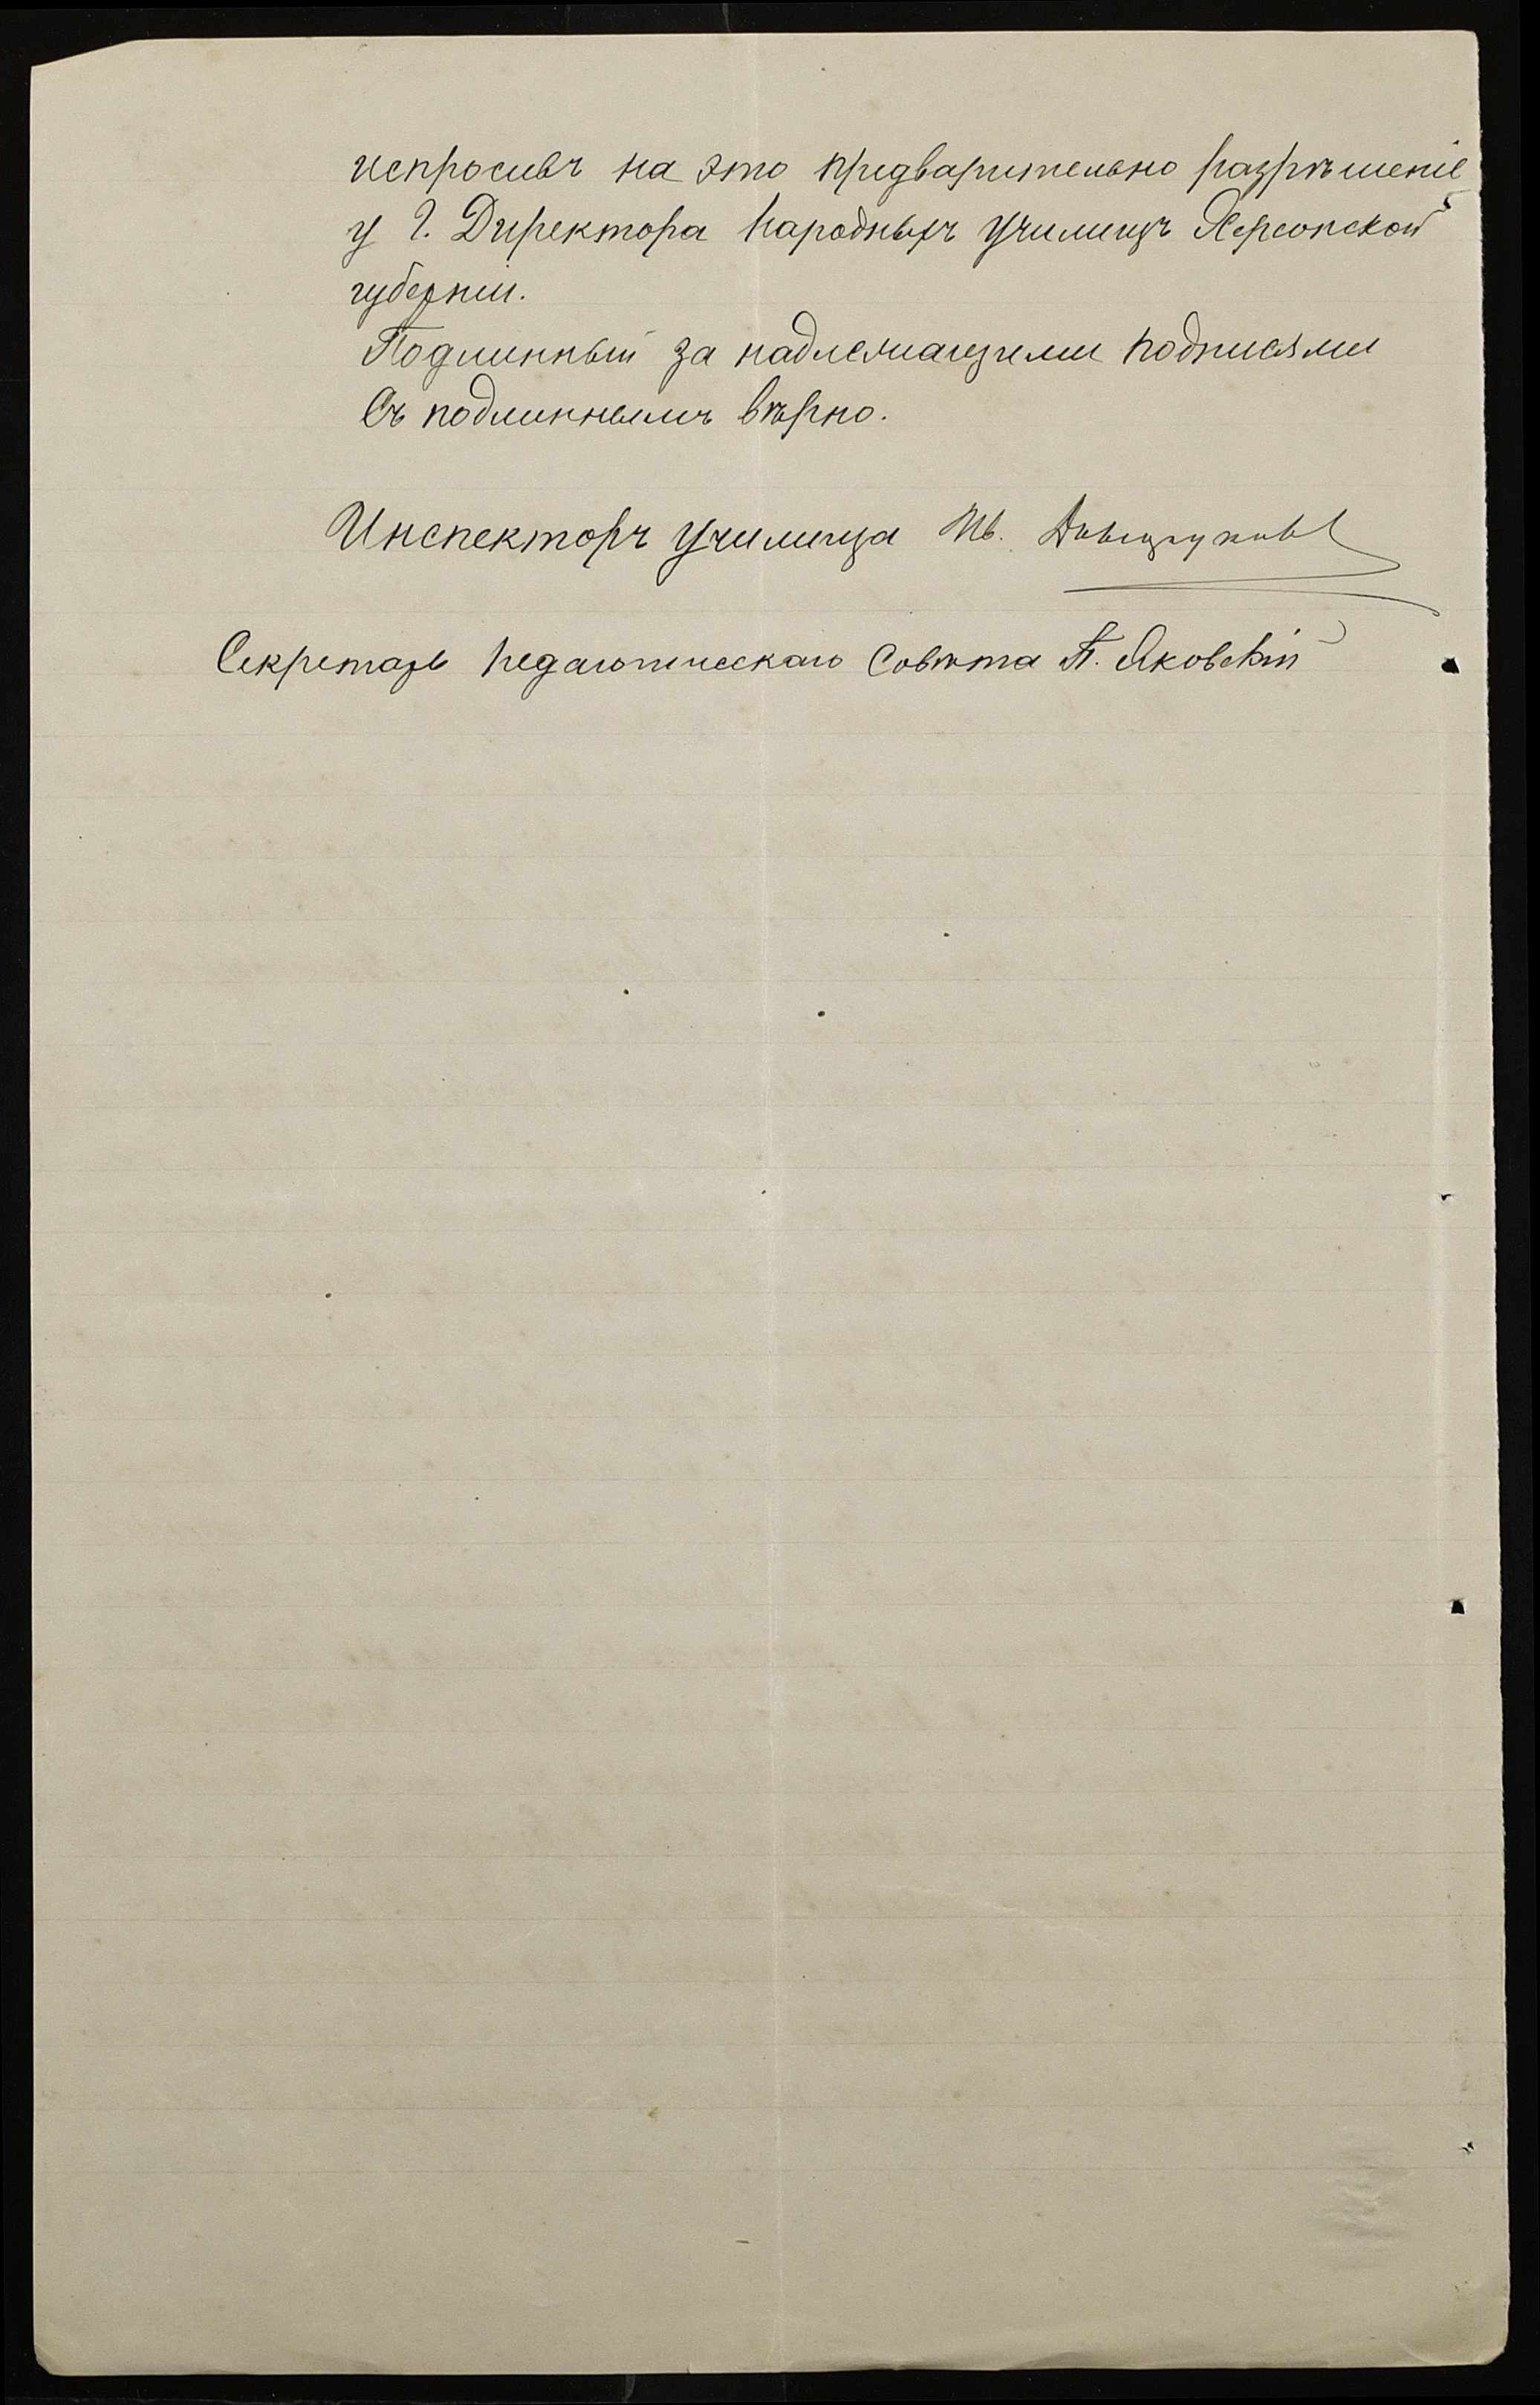 испросивъ на это предварительно разрѣшеніе
у Г. Директора народныхъ училищъ Херсонской
губерніи.
Подлинный за надлежащими подписями
Съ подлиннымъ вѣрно.
Инспекторъ училища Ив.
Секретарь педагогическаго совѣта П. Яковскій